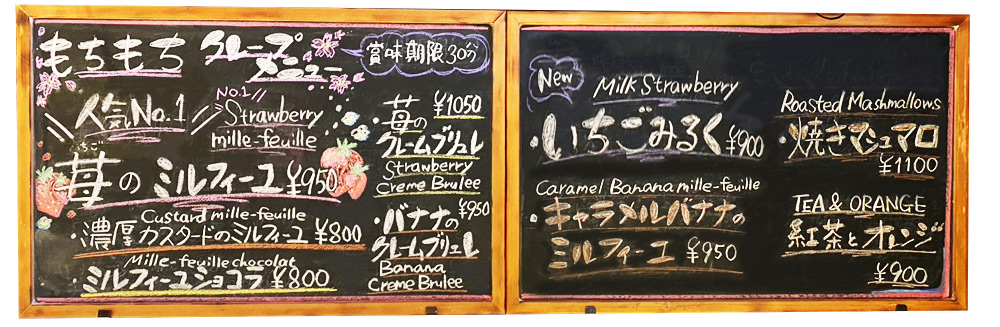 もちもち クレープメニュー
賞味期限30分
人気No.1
No.1
Strawberry
mille-feuille
いちご
苺のミルフィーユ ¥950
Custard mille-feuille
・濃厚カスタードのミルフィーユ ¥800
Mille-feuille chocolat
・ミルフィーユショコラ ¥800
・苺の ¥1050
クレームブリュレ
Strawberry
Creme Brulee
・バナナの ¥950
クレームブリュレ
Banana
Creme Brulee
New
Milk Strawberry
・いちごみるく ¥900
Caramel Banana mille-feuille
・キャラメルバナナの
ミルフィーユ ¥950
Roasted Mashmallows
・焼きマシュマロ
¥1100
TEA & ORANGE
紅茶とオレンジ
¥900